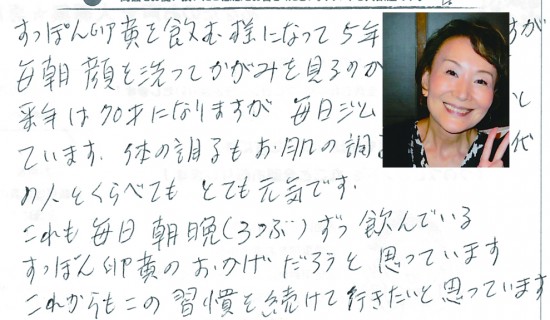 すっぽん卵黄を飲む様になって5年 すが
毎朝顔を洗ってかがみを見るのが
来年は70才になりますが 毎日ジム と
ています. 体の調子もお肌の調 代
の人とくらべても とても元気です.
これも毎日 朝晩(3つぶ)ずつ 飲んでいる
すっぽん卵黄の おかげ だろうと 思っています
これからもこの習慣を続けて行きたいと思っています